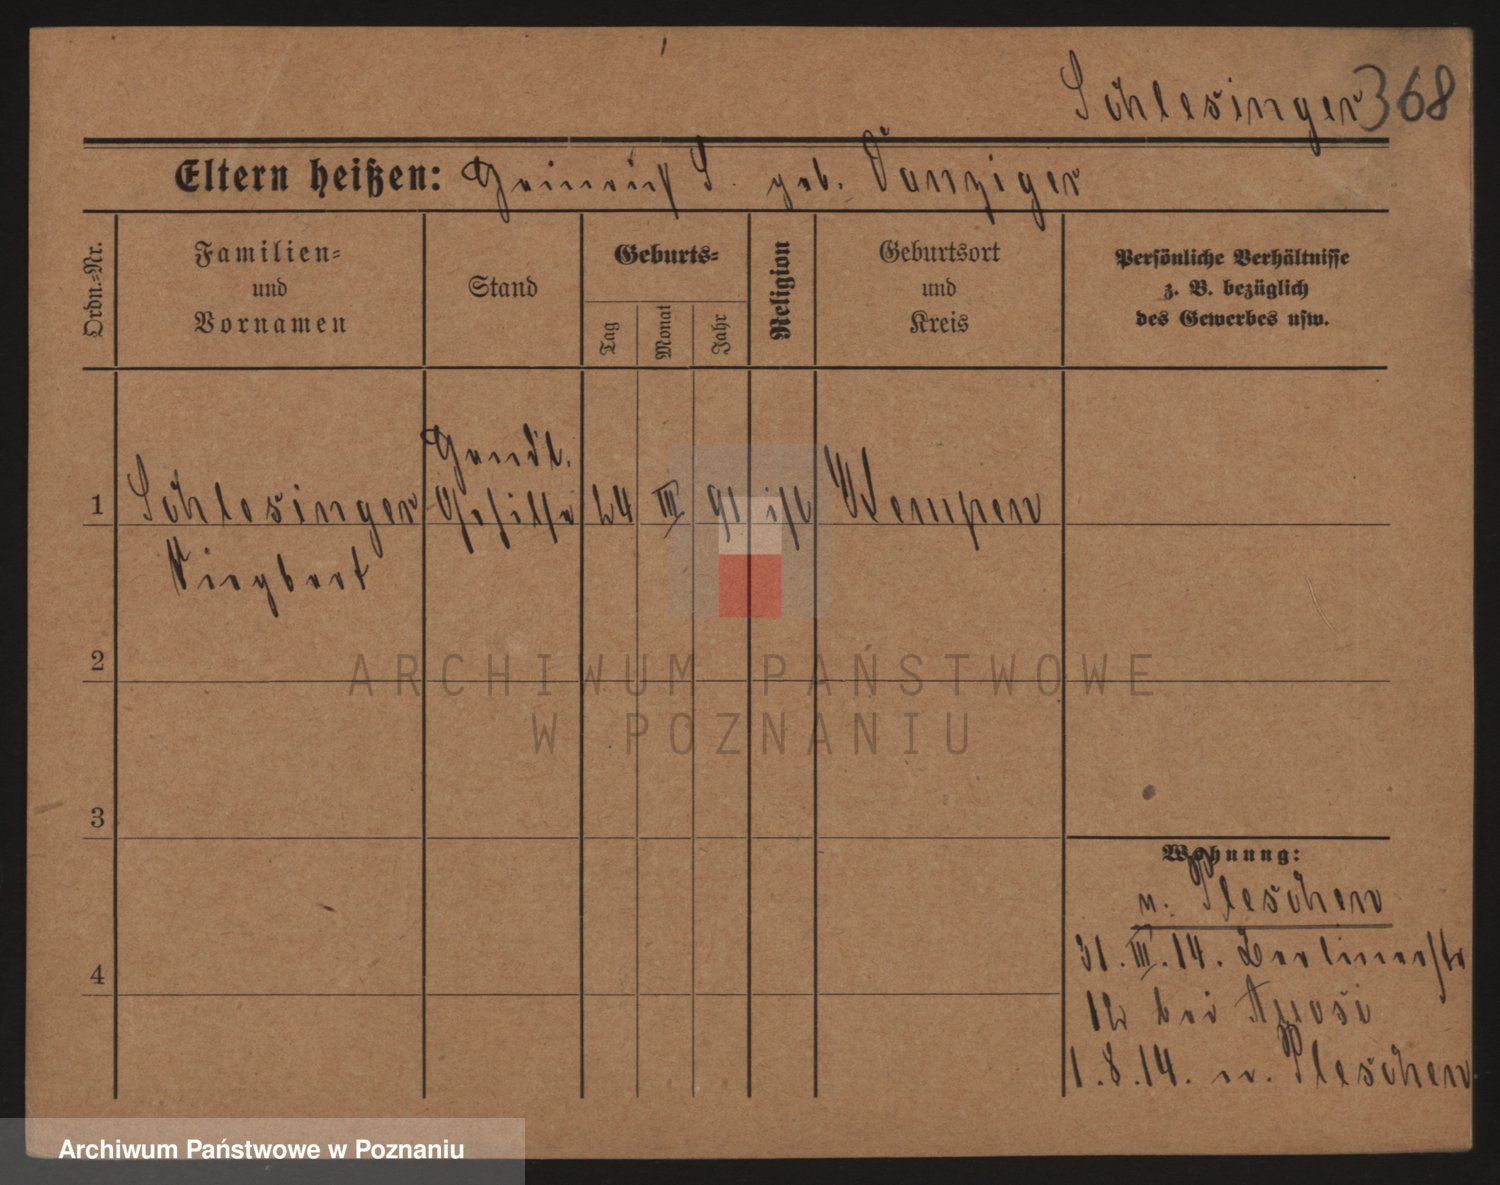 Schlesinger 368
Eltern heißen: Heinrich S. geb. Danziger
Ordn.=Nr.
Familien=
und
Vornamen
Stand
Geburts=
Tag
Monat
Jahr
Religion
Geburtsort
und
Kreis
Persönliche Verhältnisse
z. B. bezüglich
des Gewerbes usw.
1 Schlesinger Handl. Gehilfe 24 III 91 isr Kempen
Siegbert
2
3
4
Wohnung:
n. Pleschen
31. III. 14. Berlinerstr
12 bei
1. 8. 14. n. Pleschen
ARCHIWUM PAŃSTWOWE
W POZNANIU
Archiwum Państwowe w Poznaniu